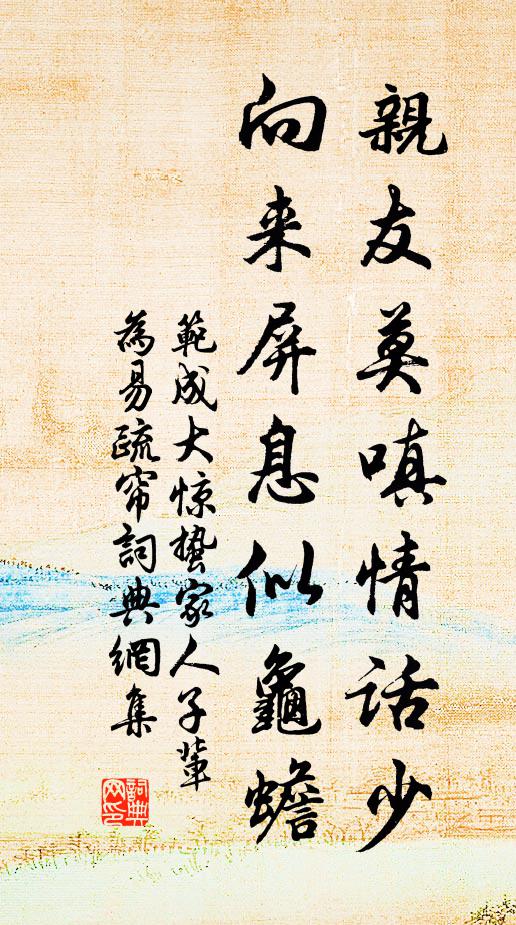 親友莫嗔情話少
向来屏息似龜蟾
範成大惊蟄家人子輩
為易疏帘詞典網集
詞典网印